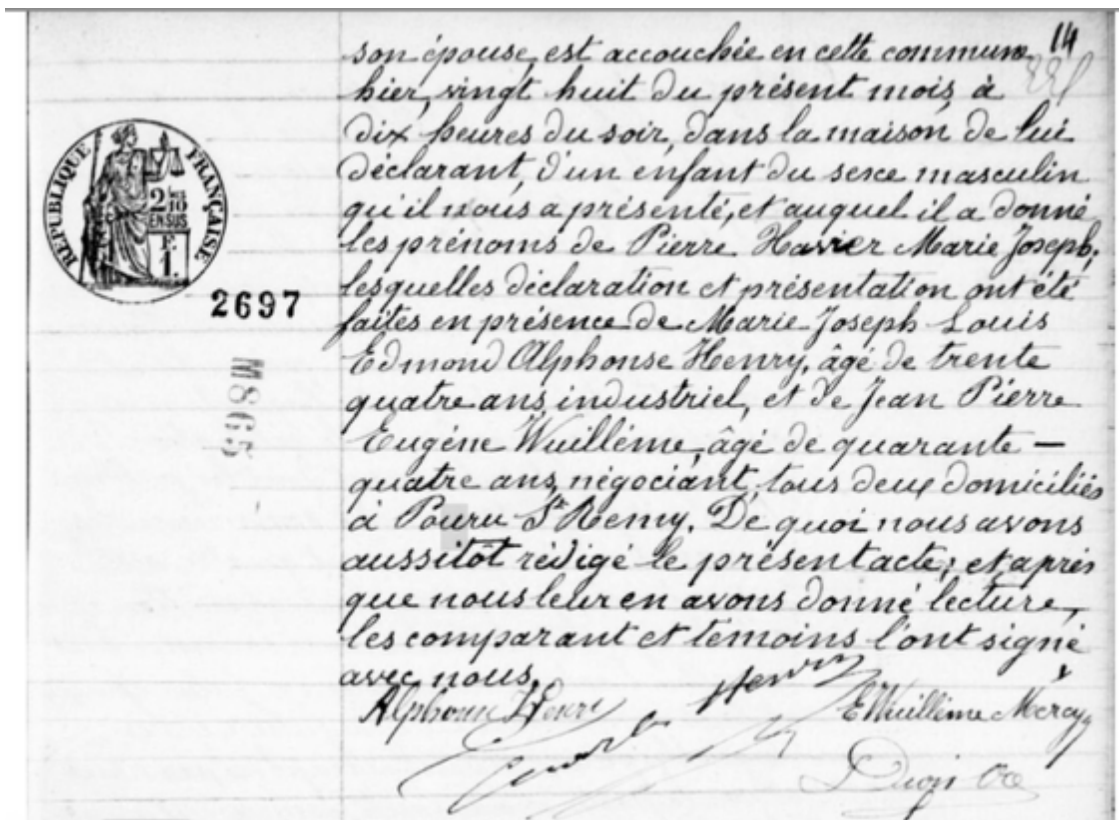 14
son épouse, est accouchée en cette commune
hier, vingt huit du présent mois, à
dix heures du soir, dans la maison de lui
déclarant, d'un enfant du sexe masculin
qu'il nous a présenté, et auquel il a donné
les prénoms de Pierre Havier Marie Joseph,
lesquelles déclaration et présentation ont été
faites en présence de Marie Joseph Louis
Edmond Alphonse Henry, âgé de trente
quatre ans, industriel, et de Jean Pierre
Eugène Wuillème, âgé de quarante —
quatre ans, négociant, tous deux domiciliés
a Pouru St Remy. De quoi nous avons
aussitôt rédigé le présent acte, et après
que nous leur en avons donné lecture,
les comparant et temoins l'ont signé
avec nous.
Alphonse Henry
Henry
EWuillème Mercy
RÉPUBLIQUE FRANÇAISE
2/10
EN SUS
F.
1.
2697
M895